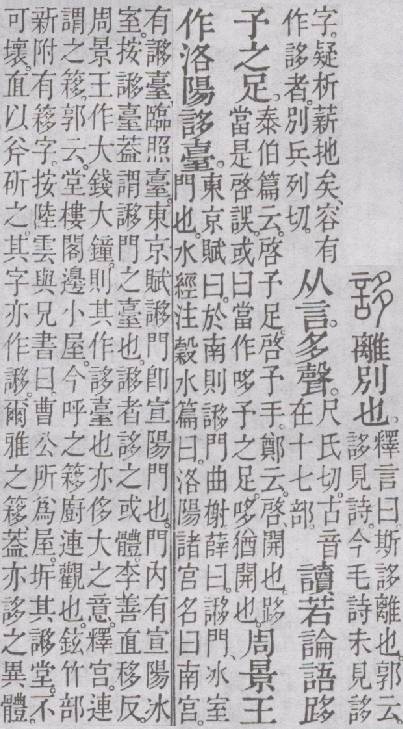 誃離別也。釋言曰。斯誃離也。郭云
誃見詩。今毛詩未見誃
字。疑析薪扡矣、容有
作誃者。別兵列切。
从言。多聲。尺氏切。古音
在十七部。
讀若論語跢
予之足。泰伯篇云。啓予足。啓予手。鄭云。啓、開也。跢
當是啓誤。或曰當作哆予之足。哆猶開也。
周景王
作洛陽誃臺。東京賦曰。於南則謻門曲榭。薛曰。謻門、冰室
門也。水經注穀水篇曰。洛陽諸宮名曰南宮。
有謻臺。臨照臺。東京賦謻門卽宣陽門也。門內有宣陽冰
室。按謻臺葢謂謻門之臺也。謻者誃之或體。李善直移反。
周景王作大錢大鐘。則其作誃臺也亦侈大之意。釋宮。連
謂之簃。郭云。堂樓閣邊小屋。今呼之簃廚連觀也。鉉竹部
新附有簃字。按陸雲與兄書曰。曹公所爲屋。坼其謻堂。不
可壞。直以斧斫之。其字亦作謻。爾雅之簃葢亦誃之異體。